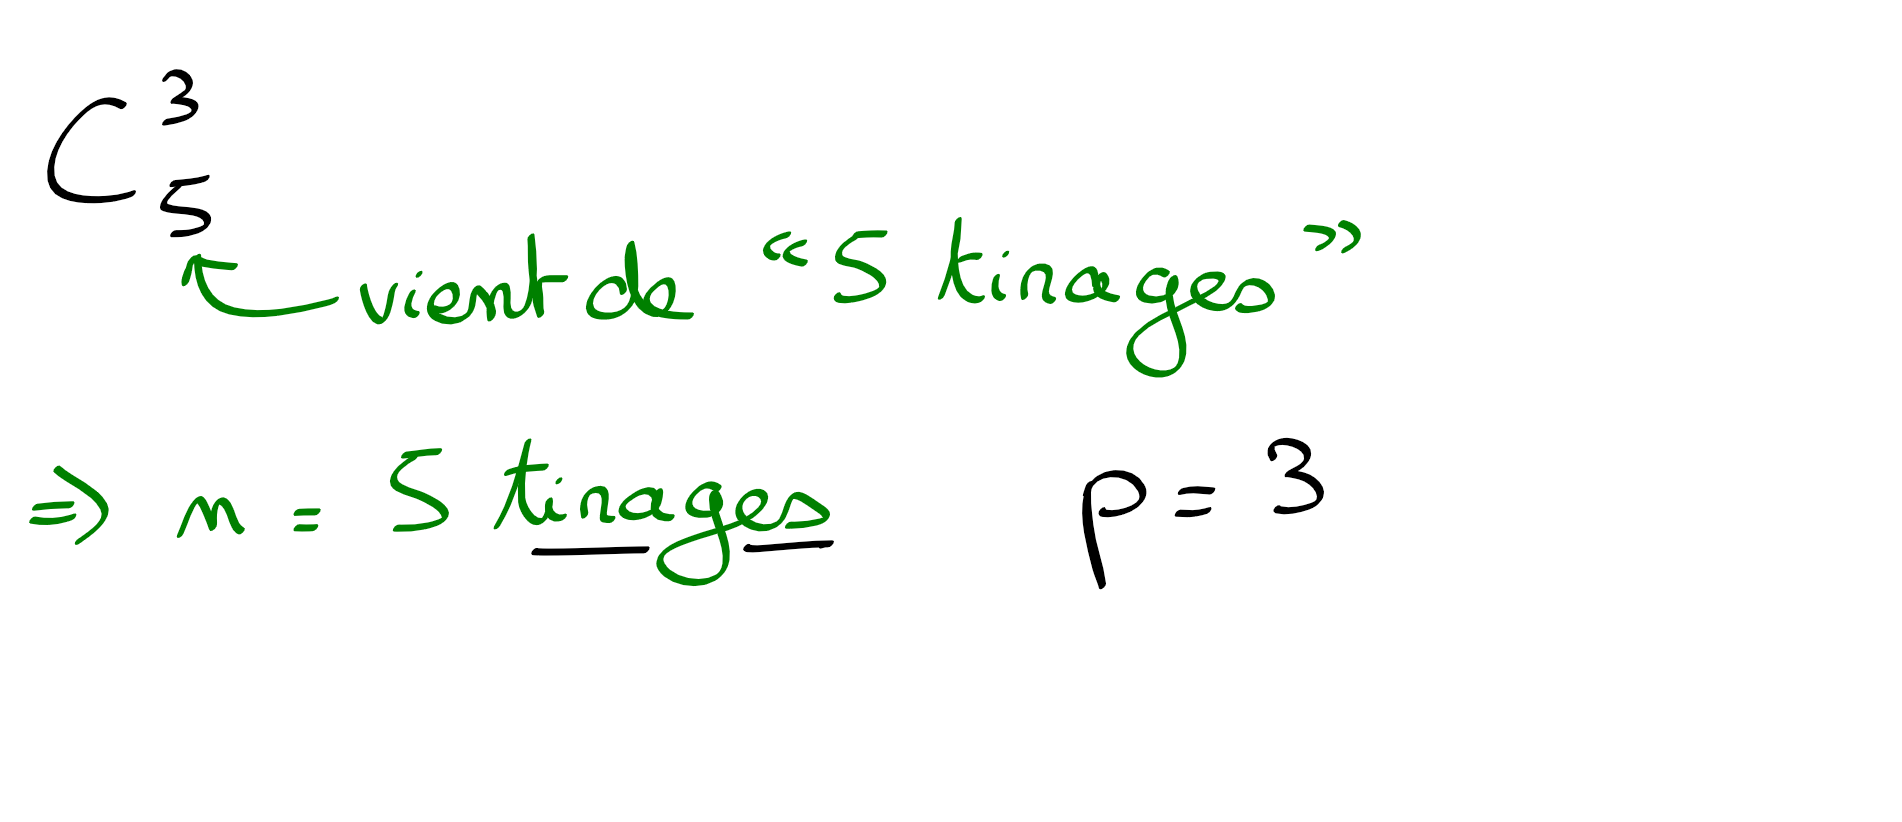 C₅³
vient de “5 tirages”
⇒ n = 5 tirages p = 3